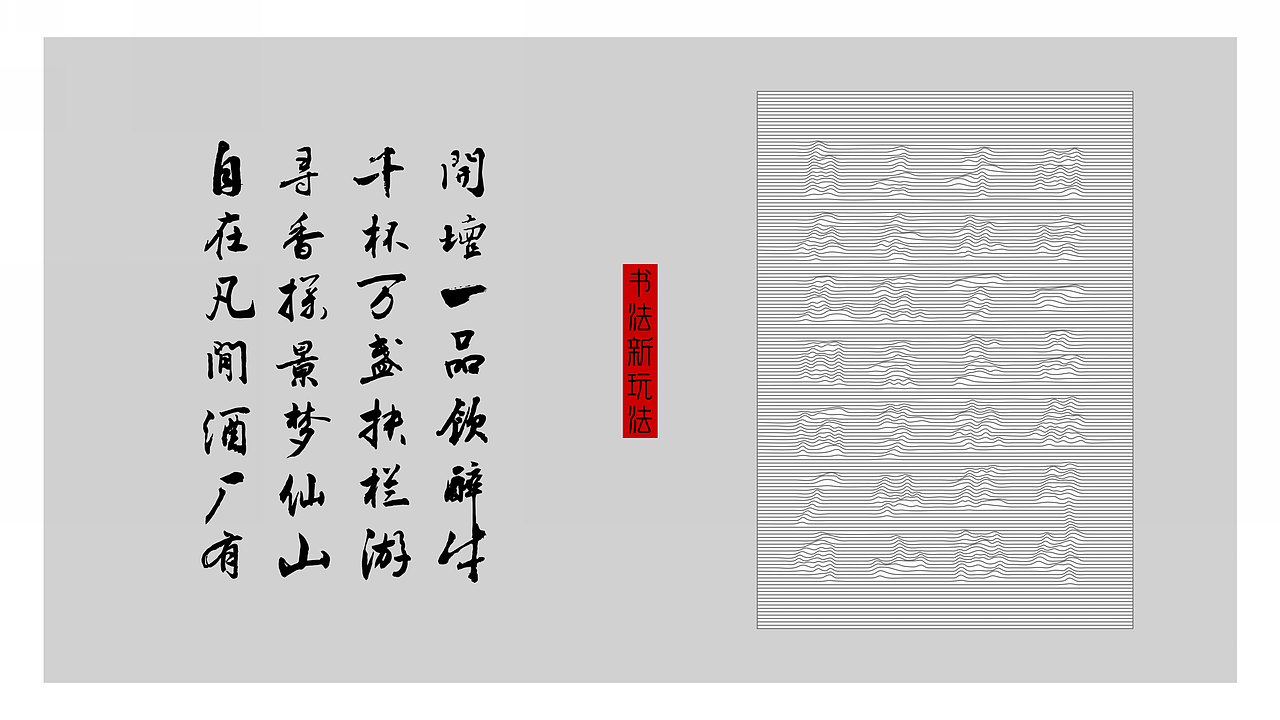 開壇一品飲醉
千杯万盏扶栏游
寻香探景梦仙山
自在凡間酒厂有
书法新玩法